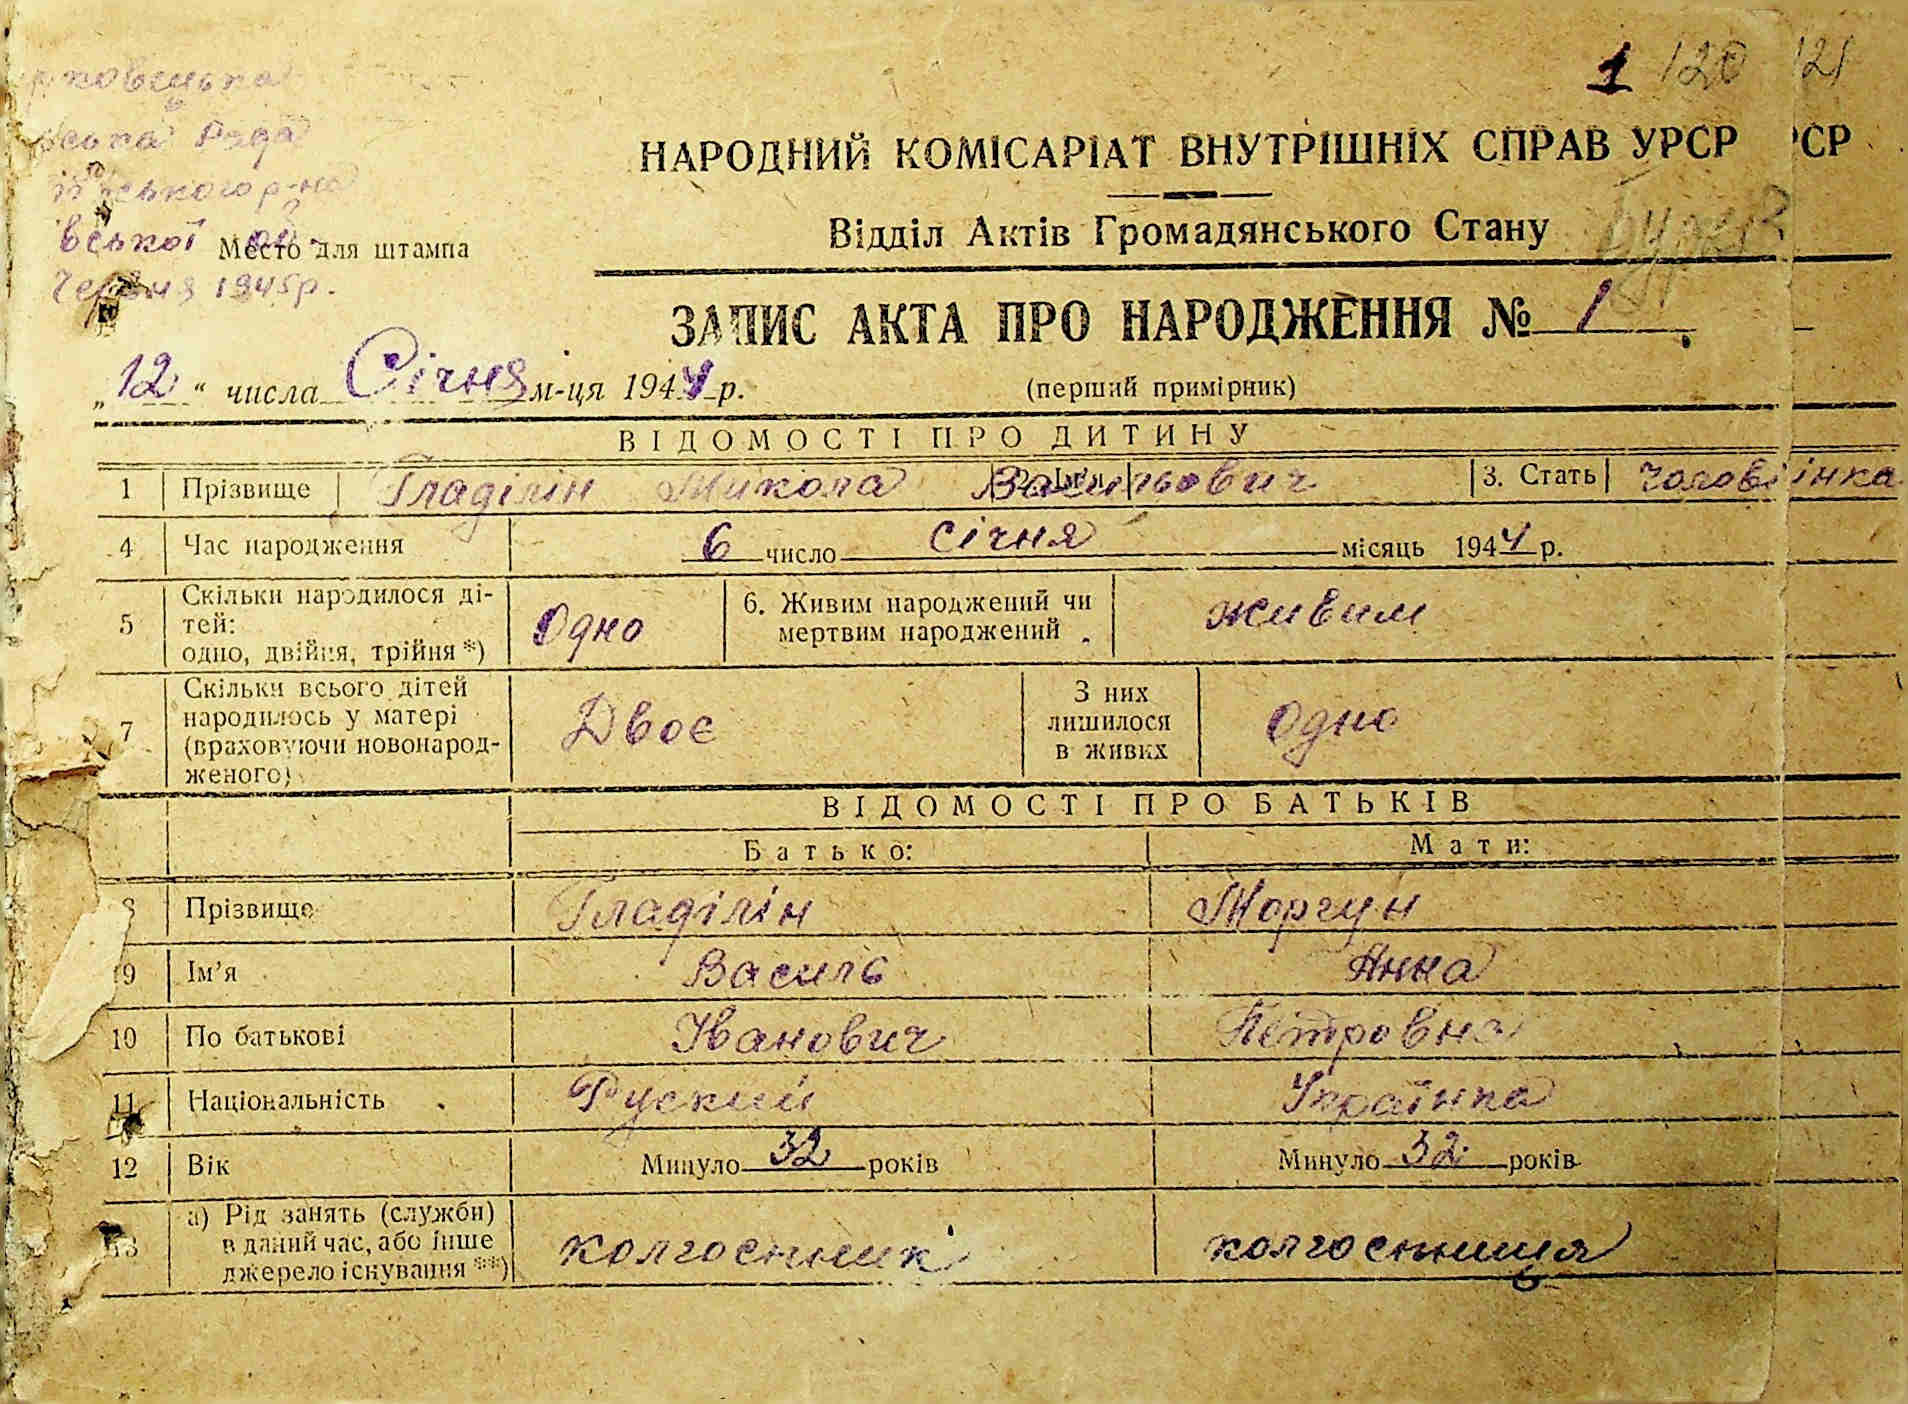 1 120 121
ська Рада
ського р-на
вської обл.
Червня 1945р.
Место для штампа
НАРОДНИЙ КОМІСАРІАТ ВНУТРІШНІХ СПРАВ УРСР РСР
Відділ Актів Громадянського Стану
ЗАПИС АКТА ПРО НАРОДЖЕННЯ № 1
„12" числа Січня м-ця 1944 р. (перший примірник)
ВІДОМОСТІ ПРО ДИТИНУ
1 Прізвище Гладілін Микола Васильович 3. Стать Чолові інка
4 Час народження 6 число Січня місяць 1944 р.
5 Скільки народилося ді-
тей:
одно, двійня, трійня *) Одно 6. Живим народжений чи
мертвим народжений живим
7 Скільки всього дітей
народилось у матері
(враховуючи новонарод-
женого) Двоє З них
лишилося
в живих Одно
ВІДОМОСТІ ПРО БАТЬКІВ
Батько: Мати:
8 Прізвище Гладілін Моргун
9 Ім'я Василь Анна
10 По батькові Іванович Петровна
11 Національність Руский Українка
12 Вік Минуло 32 років Минуло 32 років
13 а) Рід занять (служби)
в даний час, або інше
джерело існування **) колгоспник колгоспниця